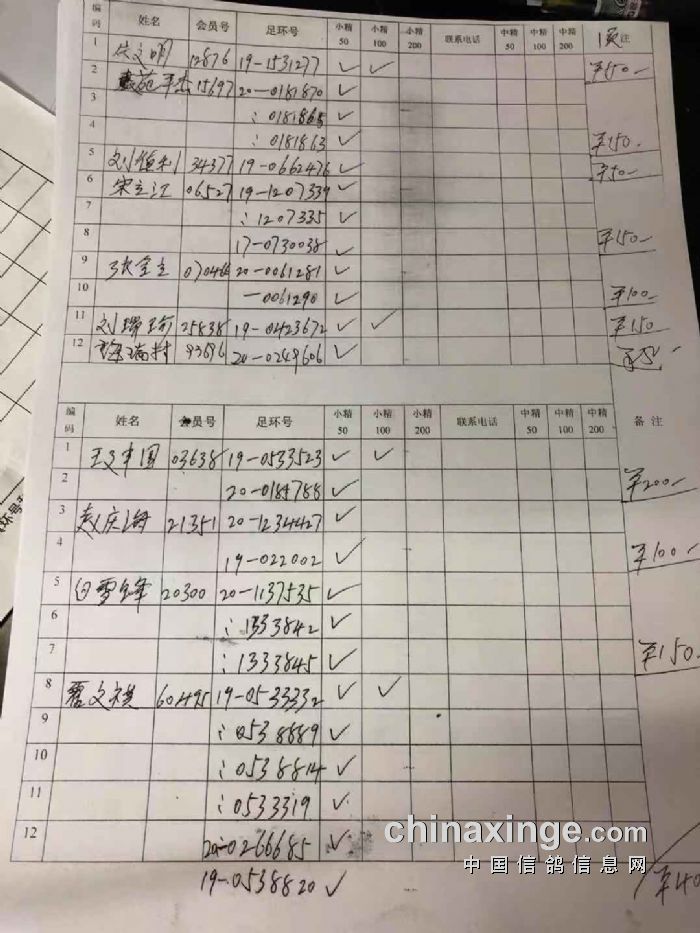 编码 姓名 会员号 足环号 小精50 小精100 小精200 联系电话 中精50 中精100 中精200 注
1 12876 19-1531277 ✓ ✓ ¥150-
2 15697 20-0181870 ✓
3 : 0181865 ✓
4 : 0181863 ✓ ¥150-
5 刘恒利 34377 19-0662476 ✓ ¥50-
6 宋立江 06527 19-1207339 ✓
7 : 1207335 ✓
8 17-0730038 ✓ ¥150-
9 张金立 20-0061281 ✓
10 -0061290 ✓ ¥100-
11 刘瑞 25838 19-0423672 ✓ ✓ ¥150-
12 瑞村 93696 20-0249606 ✓
编码 姓名 会员号 足环号 小精50 小精100 小精200 联系电话 中精50 中精100 中精200 备注
1 03638 19-0533523 ✓ ✓
2 ✓ ¥200-
3 赵庆海 21351 20-1234427 ✓
4 19-022002 ✓ ¥100-
5 白雪峰 20300 20-1137535 ✓
6 : 1333842 ✓
7 : 1333845 ✓ ¥150-
8 翟文祺 60495 19-0533332 ✓ ✓
9 : 0538889 ✓
10 : 0538814 ✓
11 : 0533319 ✓
12 20-0266685 ✓
19-0538820 ✓ ¥40
chinaxinge.com
中国信鸽信息网
环号